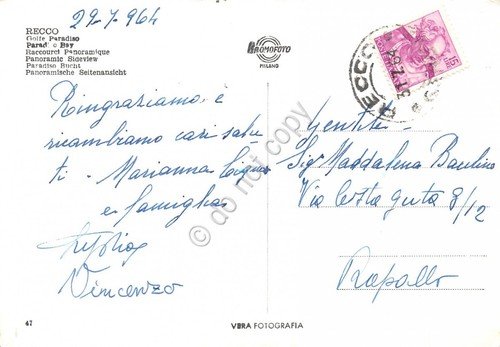 29-7-964
RECCO
Golfo Paradiso
Paradiso Bay
Raccourci Panoramique
Panoramic Sideview
Paradiso Bucht
Panoramische Seitenansicht
BROMOFOTO
MILANO
RECCO
Ringraziamo e
ricambiamo cari salu
ti - Marianna
e famiglia
Vincenzo
Gentile
Sig. Maddalena
Via Costaguta 8/12
Rapallo
do not copy
47
VERA FOTOGRAFIA